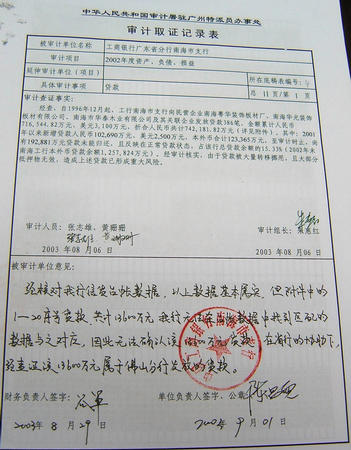 中华人民共和国审计署驻广州特派员办事处
审计取证记录表
被审计单位名称 工商银行广东省分行南海市支行
被审计单位项目 2002年度资产、负债、损益
延伸审计单位(项目) 所在底稿表编号:
审计事项 贷款 总 11 页第 1 页
审计查证事实:
经查,自1996年12月起,工行南海市支行向民营企业南海粤华装饰板材厂、南海华光装饰
板材有限公司、南海市华泰木业有限公司及其关联企业发放贷款386笔,金额累计人民币
716,544.82万元,美元3,100万元,折合人民币共计742,181.82万元(详见附件)。其中:2001
年以来新增贷款人民币102,690万元,美元2,500万元,本外币合计123,365万元,至审计时止,尚
有192,881万元未能归还,且反映在正常贷款状态,占该行总贷款余额的15.33%(2002年末
南海工行本外币贷款余额1,257,824万元)。经审计核实,由于贷款被大量转移挪用,且大部分
抵押物无效,造成上述贷款已形成重大风险。
审计人员:张志雄、黄珊珊 审计组长:
2003 年 08 月 06 日 2003 年 08 月 06 日
被审计单位意见:
经核对我行信贷台帐数据,以上数据基本属实,但附件中的
1—20序号贷款,共计13600万元,我行无法在台帐数据中找到匹配的
数据与之对应,因此无法确认该13600万元贷款,在省行的协助下,
经查证该13600万元属于佛山分行发放的贷款。
财务负责人签字: 单位负责人签字、公章:
2003年8月29日 2003年9月01日